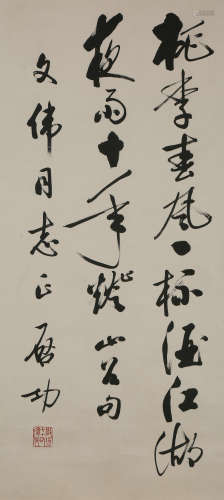 桃李春風一杯酒江湖
夜雨十年燈 山谷句
文伟同志正 启功